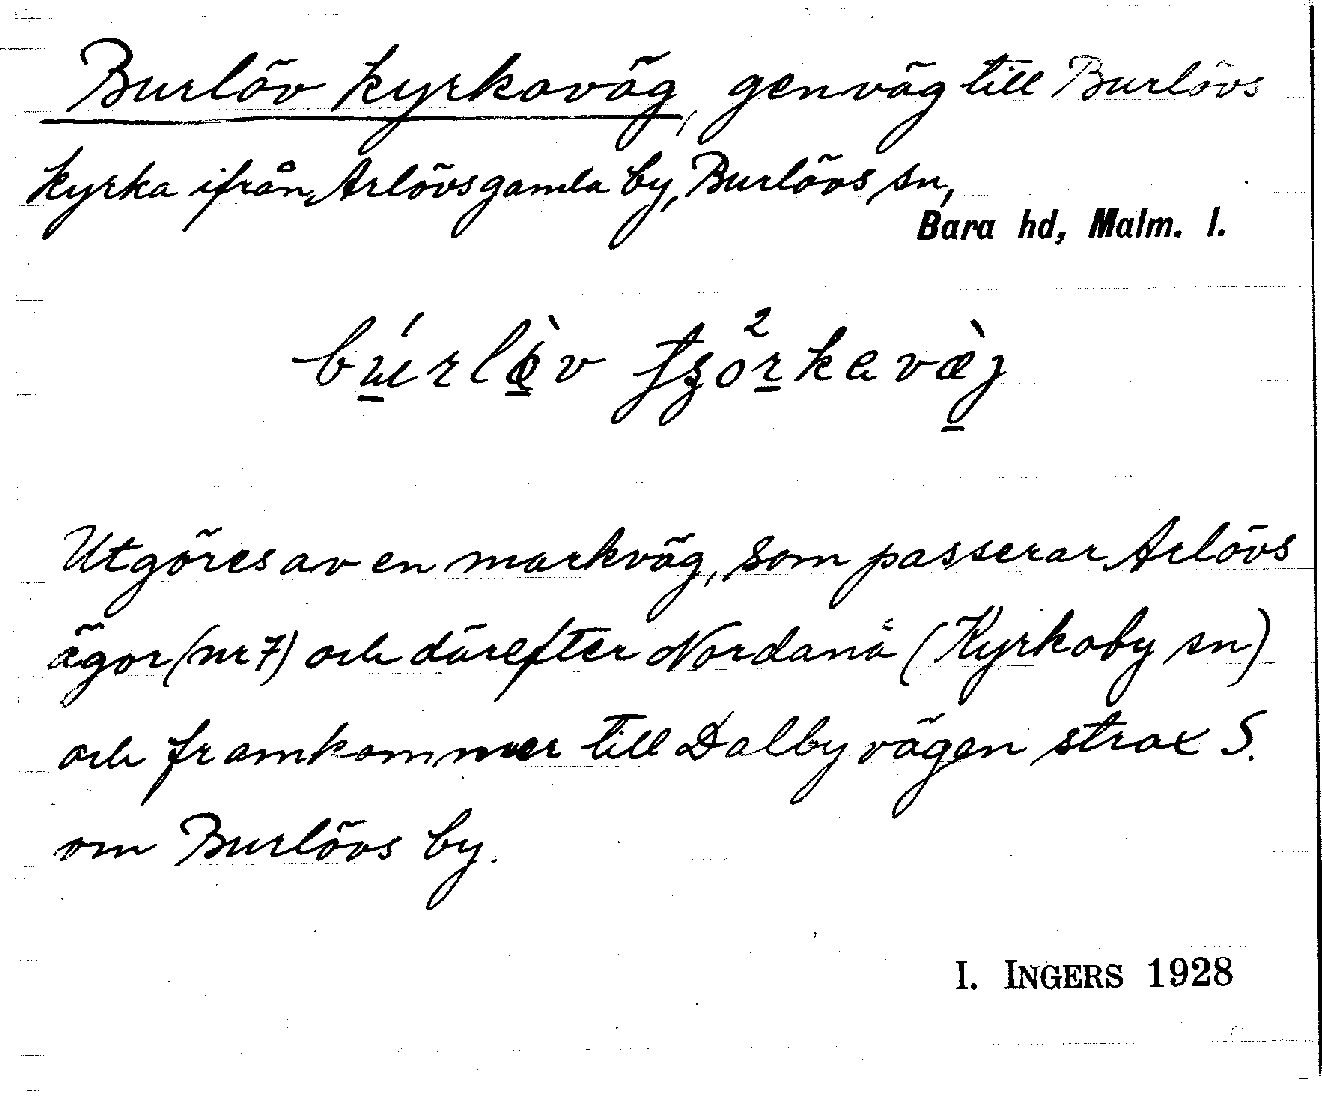 Burlöv kyrkaväg, genväg till Burlövs
kyrka ifrån Arlövs gamla by, Burlövs sn,
Bara hd, Malm. l.
Utgöres av en markväg, som passerar Arlövs
ägor (nr 7) och därefter Nordanå (Kyrkoby sn)
och framkommer till Dalbyvägen strax S.
om Burlövs by.
I. INGERS 1928